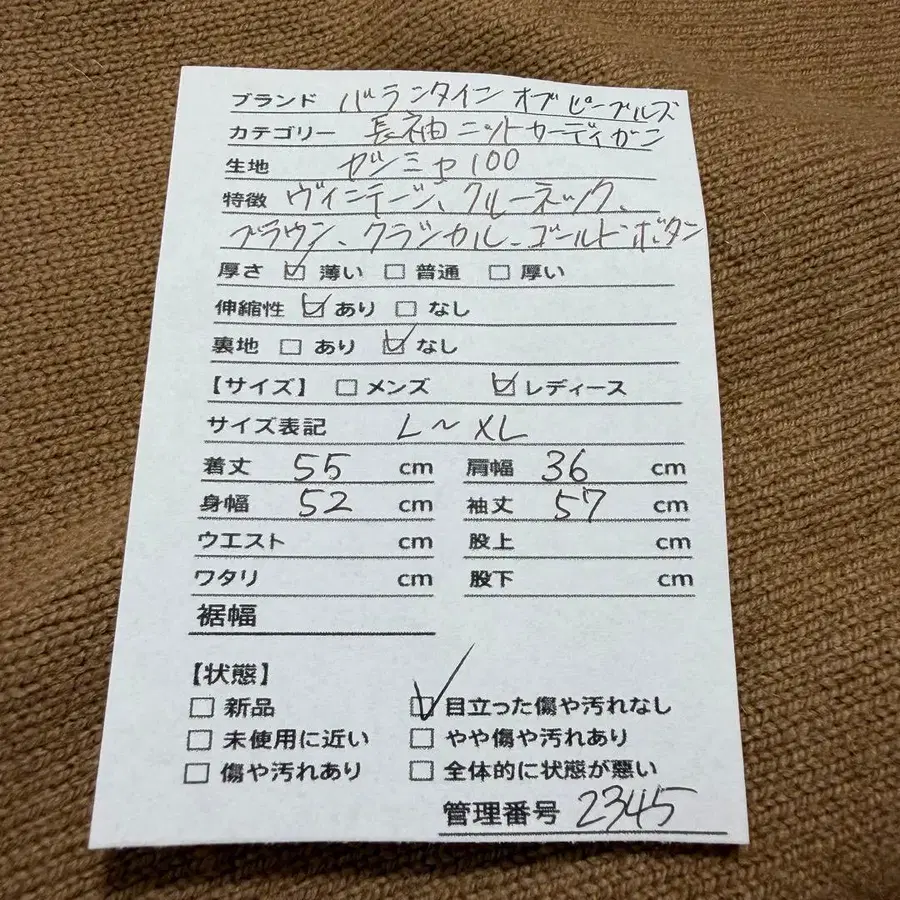 ブランド バランタイン オブ ピーブルズ
カテゴリー 長袖 ニットカーディガン
生地 カシミヤ100
特徴 ヴィンテージ、クルーネック、
ブラウン、クラシカル、ゴールドボタン
厚さ ☑ 薄い ☐ 普通 ☐ 厚い
伸縮性 ☑ あり ☐ なし
裏地 ☐ あり ☑ なし
【サイズ】 ☐ メンズ ☑ レディース
サイズ表記 L~XL
着丈 55 cm 肩幅 36 cm
身幅 52 cm 袖丈 57 cm
ウエスト cm 股上 cm
ワタリ cm 股下 cm
裾幅
【状態】
☐ 新品 ☑ 目立った傷や汚れなし
☐ 未使用に近い ☐ やや傷や汚れあり
☐ 傷や汚れあり ☐ 全体的に状態が悪い
管理番号 2345